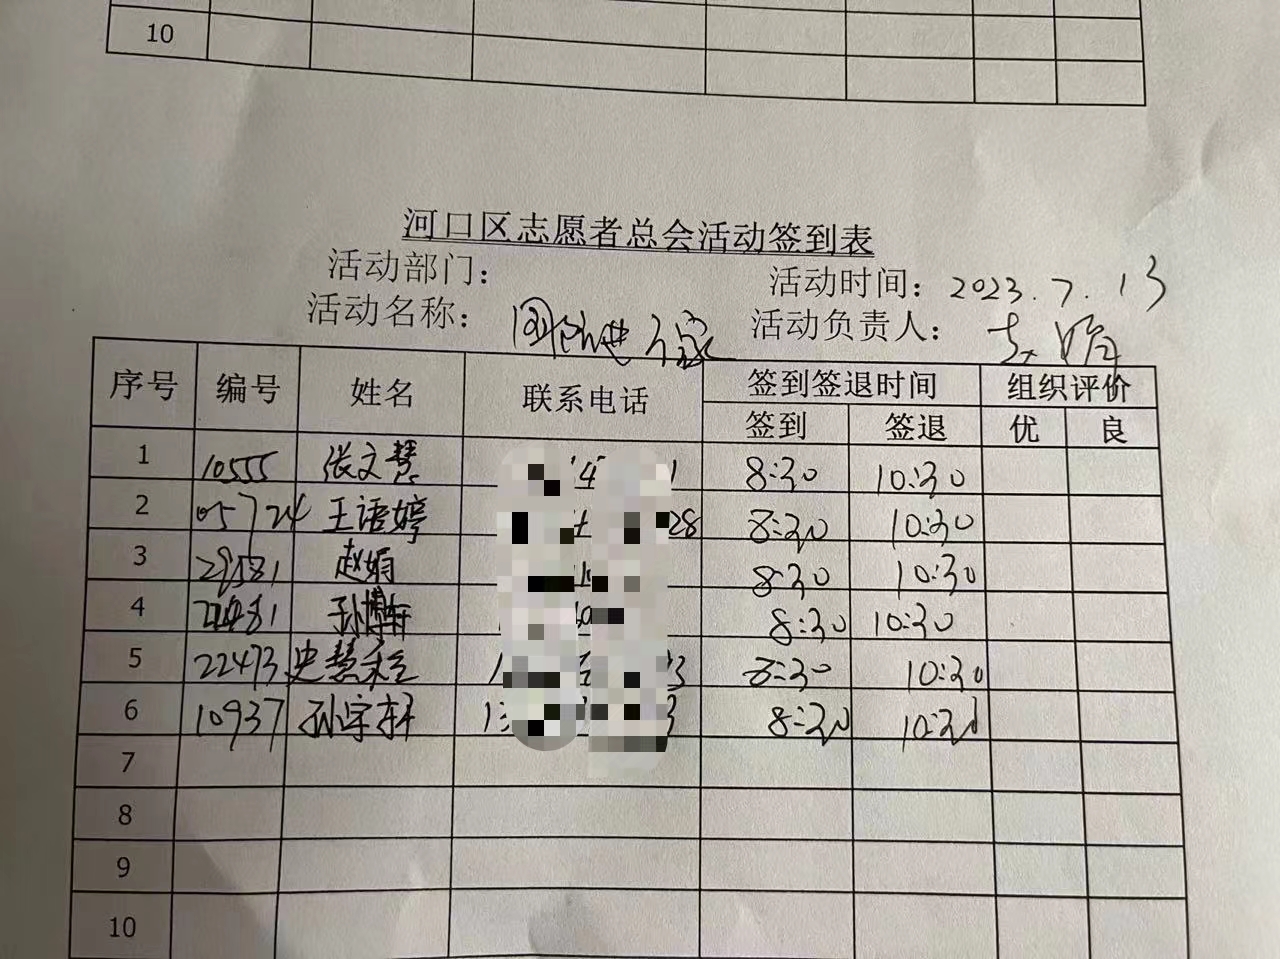 10
河口区志愿者总会活动签到表
活动部门：
活动时间：2023.7.13
活动名称：
活动负责人：
序号 编号 姓名 联系电话 签到签退时间 组织评价
签到 签退 优 良
1 10555 张文慧 8:30 10:30
2 05724 王语婷 28 8:30 10:30
3 赵娟 8:30 10:30
4 孙博轩 8:30 10:30
5 22473 史慧 8:30 10:30
6 10937 孙宇轩 13 8:30 10:30
7
8
9
10